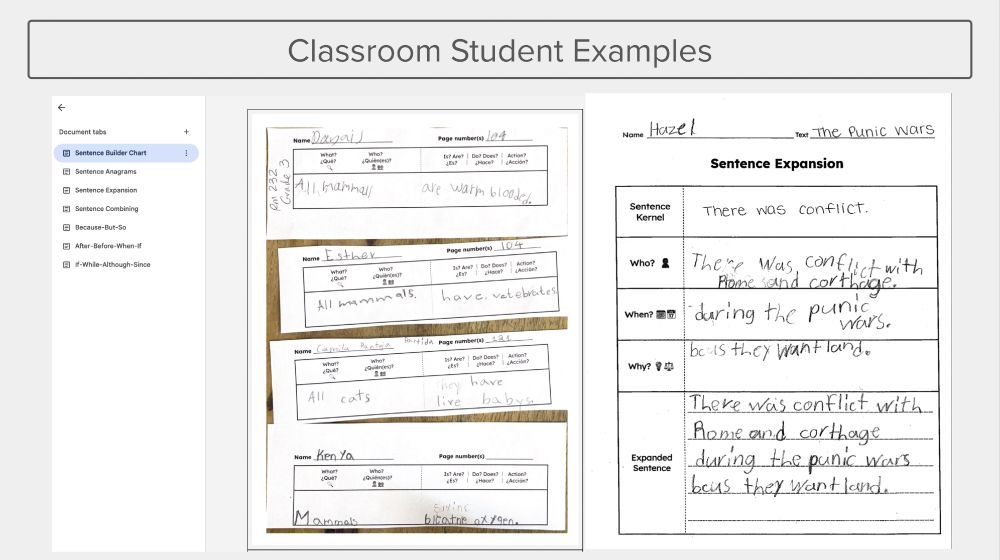 Classroom Student Examples
Document tabs
Sentence Builder Chart
Sentence Anagrams
Sentence Expansion
Sentence Combining
Because-But-So
After-Before-When-If
If-While-Although-Since
Name Page number(s) 104
What? Who? Is? Are? Do? Does? Action?
¿Qué? ¿Quién(es)? ¿Es? ¿Hace? ¿Acción?
Rm 232
Grade 3
All mammals are warm blooded.
Name Esther Page number(s) 104
What? Who? Is? Are? Do? Does? Action?
¿Qué? ¿Quién(es)? ¿Es? ¿Hace? ¿Acción?
All mammals. have vetebrates
Name Camila Page number(s) 131
What? Who? Is? Are? Do? Does? Action?
¿Qué? ¿Quién(es)? ¿Es? ¿Hace? ¿Acción?
They have
All cats live babys.
Name Kenya Page number(s)
What? Who? Is? Are? Do? Does? Action?
¿Qué? ¿Quién(es)? ¿Es? ¿Hace? ¿Acción?
Mammals oxygen.
Name Hazel Text The Punic Wars
Sentence Expansion
Sentence
Kernel
There was conflict.
Who? There was conflict with
Rome and corthage.
When? during the punic
wars.
Why? bcus they want land.
Expanded
Sentence
There was conflict with
Rome and corthage
during the punic wars
bcus they want land.